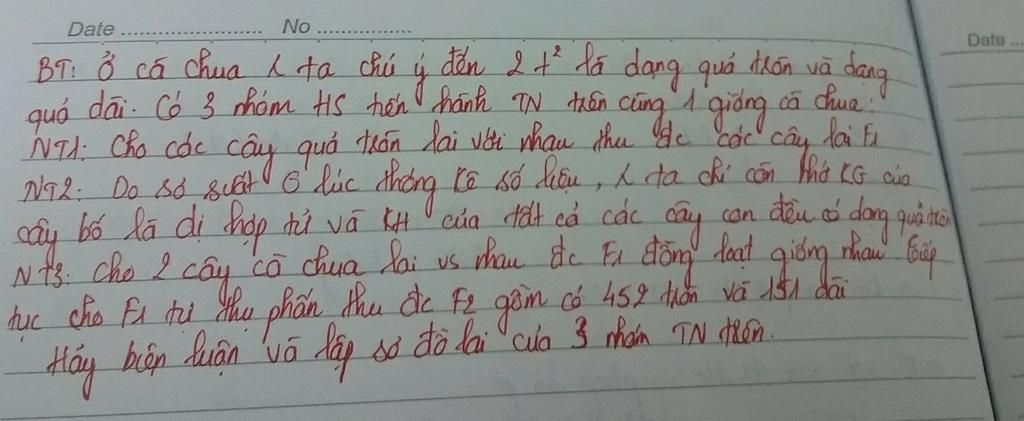 Date ........................ No ................
Date ...
BT: Ở cà chua λ ta chú ý đến 2 t² là dạng quả tròn và dạng
quả dài. Có 3 nhóm HS tiến hành TN trên cùng 1 giống cà chua:
NT1: Cho các cây quả tròn lai với nhau thu đc các cây lai F1
NT2: Do sơ suất ở lúc thống kê số liệu, λ ta chỉ còn nhớ KG của
cây bố là dị hợp tử và KH của tất cả các cây con đều có dạng quả tròn
NT3: Cho 2 cây cà chua lai vs nhau đc F1 đồng loạt giống nhau tiếp
tục cho F1 tự thụ phấn thu đc F2 gồm có 452 tròn và 151 dài
Hãy biện luận và lập sơ đồ lai của 3 nhóm TN trên.